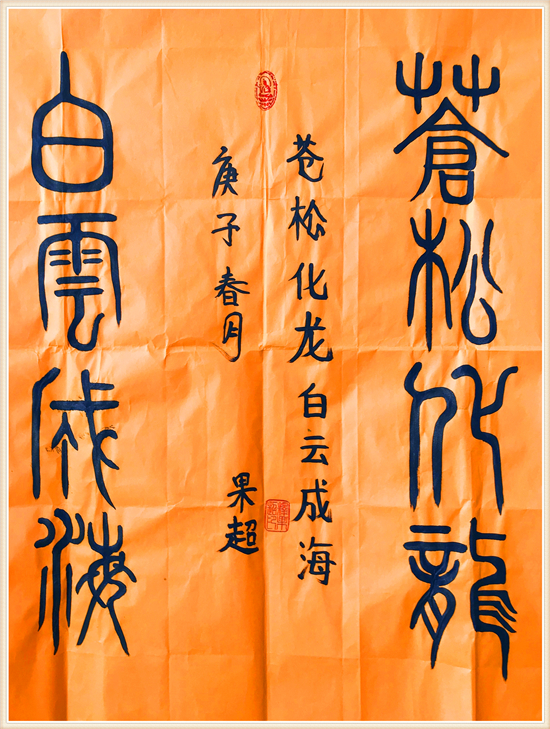 蒼松化龍
苍松化龙白云成海
庚子春月
果超
白雲成海